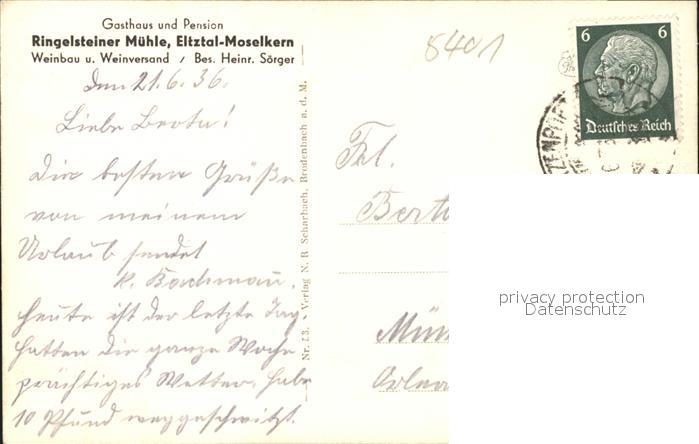 Gasthaus und Pension
Ringelsteiner Mühle, Eltztal-Moselkern
Weinbau u. Weinversand / Bes. Heinr. Sörger
8401
6 6
Deutsches Reich
den 21.6.36.
Liebe Berta!
Die besten Grüße
von meinem
Urlaub sendet
K. Bachmann.
Heute ist der letzte Tag
hatten die ganze Woche
prächtiges Wetter, habe
10 Pfund weggeschwitzt.
Nr. 23. - Verlag N. B. Scharbach, Brodenbach a. d. M.
Frl.
Bert
Mün
privacy protection
Datenschutz